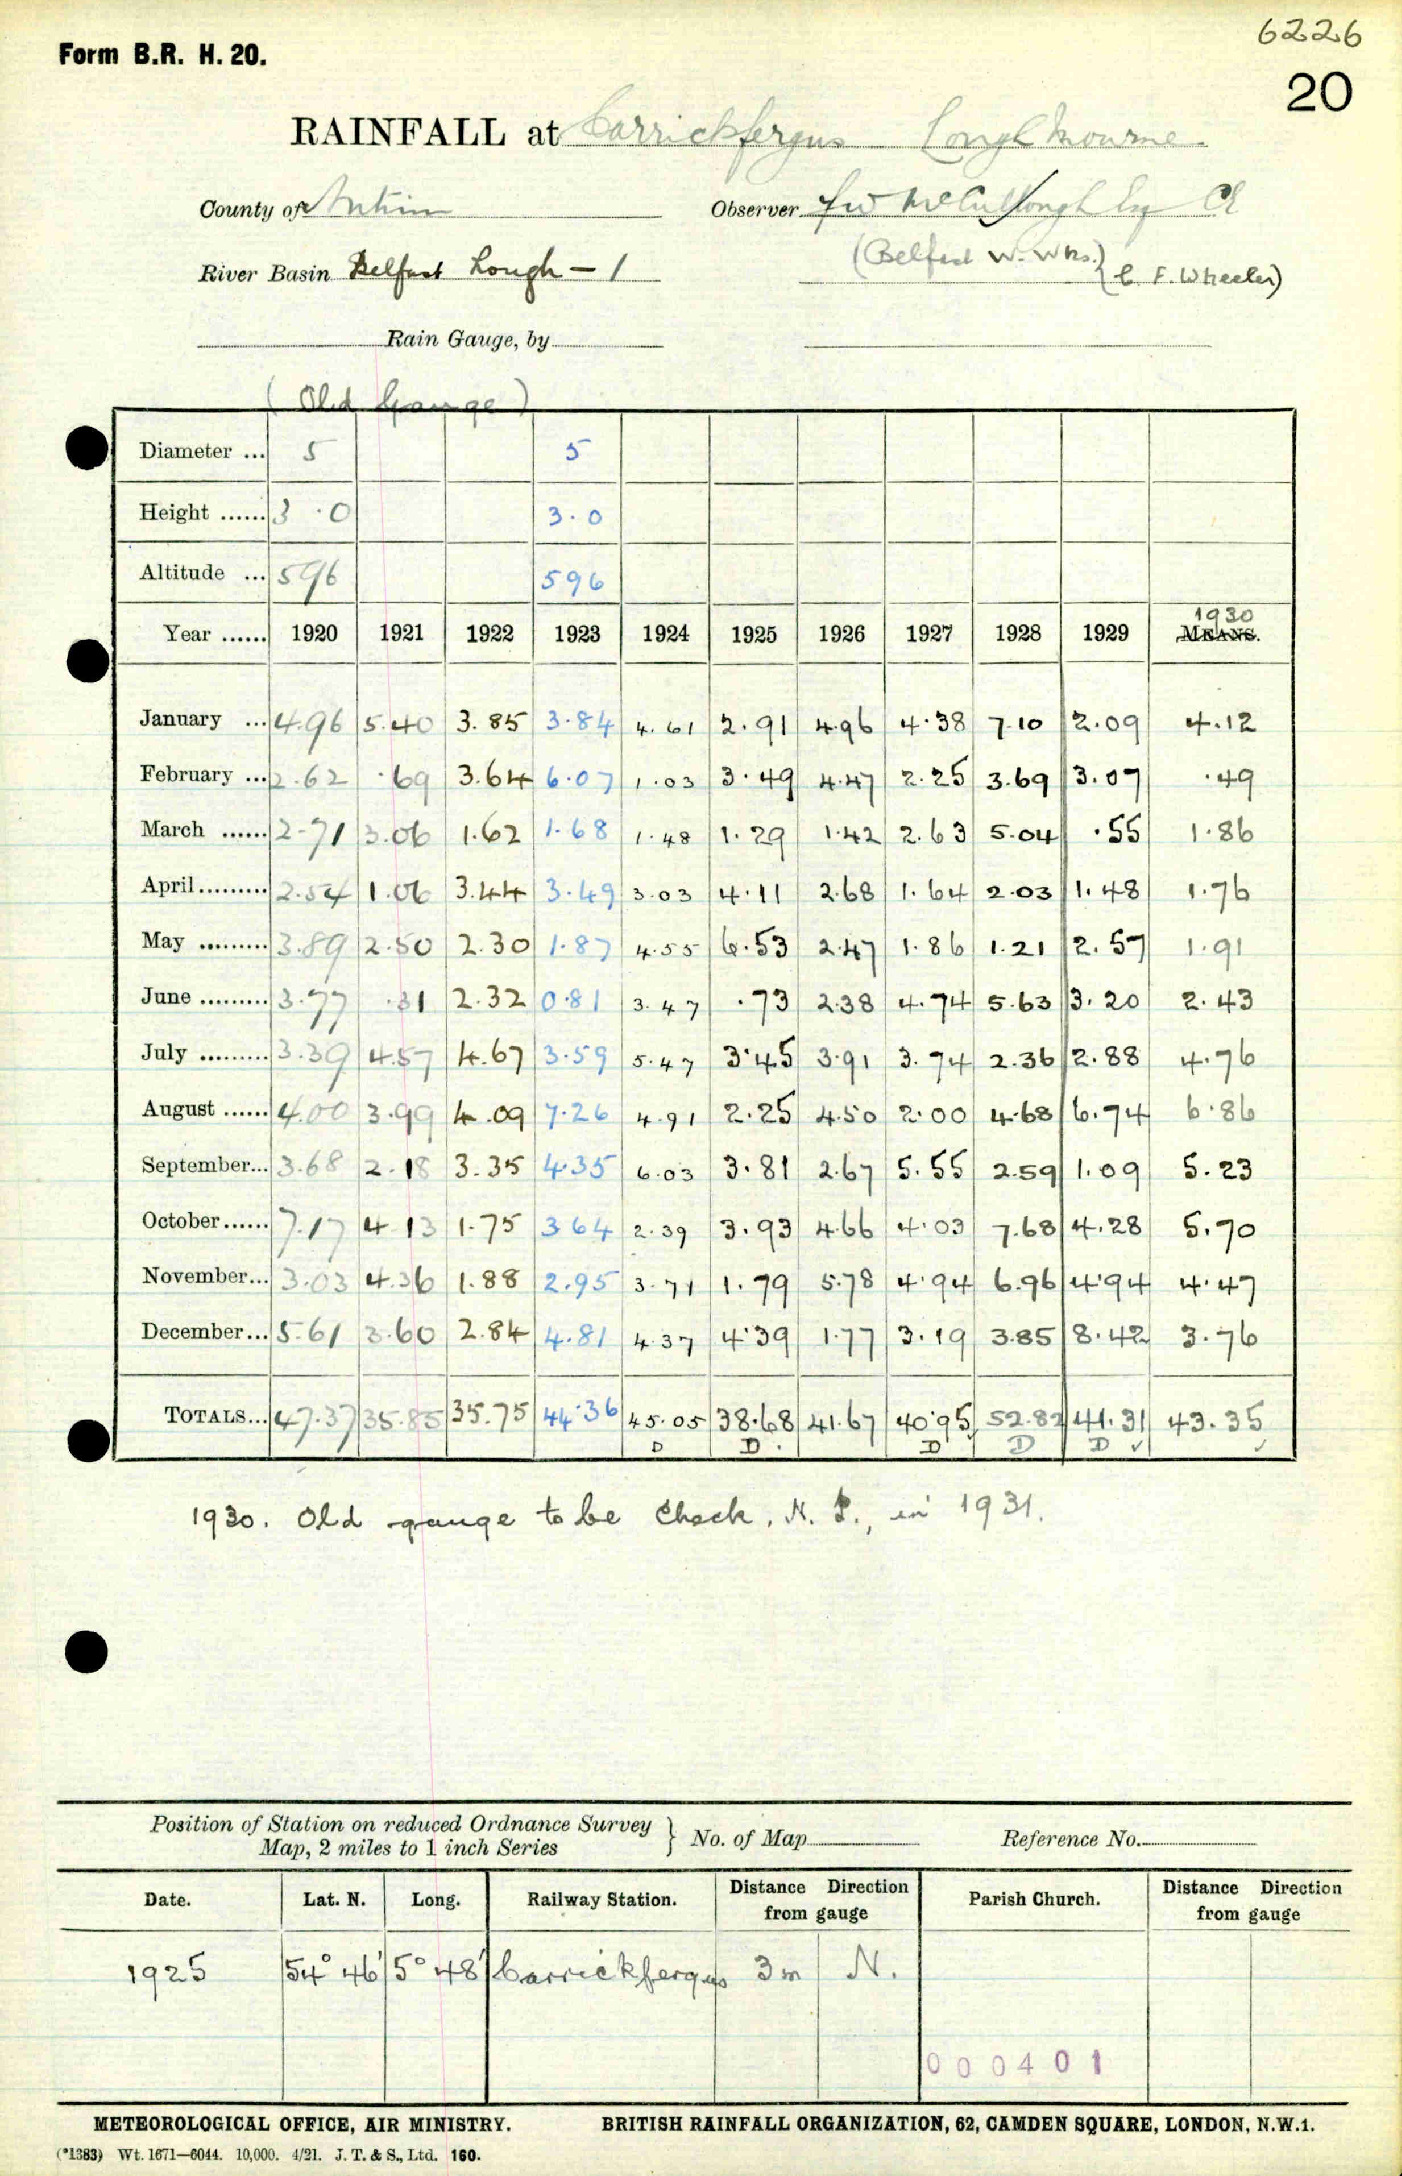 6226
Form B.R. H. 20.
20
RAINFALL at Carrickfergus Lough Mourne
County of Antrim Observer F W McCullough Esq CE
(Belfast W. Wks.) (C. F. Wheeler)
River Basin Belfast Lough - 1
Rain Gauge, by
(Old Gauge)
Diameter ... 5 5
Height ...... 3.0 3.0
Altitude ... 596 596
1930
Year ...... 1920 1921 1922 1923 1924 1925 1926 1927 1928 1929 MEANS.
January ... 4.96 5.40 3.85 3.84 4.61 2.91 4.96 4.38 7.10 2.09 4.12
February ... 2.62 .69 3.64 6.07 1.03 3.49 4.47 2.25 3.69 3.07 .49
March ...... 2.71 3.06 1.62 1.68 1.48 1.29 1.42 2.63 5.04 .55 1.86
April ......... 2.54 1.06 3.44 3.49 3.03 4.11 2.68 1.64 2.03 1.48 1.76
May ......... 3.89 2.50 2.30 1.87 4.55 6.53 2.47 1.86 1.21 2.57 1.91
June ......... 3.77 .31 2.32 0.81 3.47 .73 2.38 4.74 5.63 3.20 2.43
July ......... 3.39 4.57 4.67 3.59 5.47 3.45 3.91 3.74 2.36 2.88 4.76
August ...... 4.00 3.99 4.09 7.26 4.91 2.25 4.50 2.00 4.68 6.74 6.86
September... 3.68 2.18 3.35 4.35 6.03 3.81 2.67 5.55 2.59 1.09 5.23
October ...... 7.17 4.13 1.75 3.64 2.39 3.93 4.66 4.03 7.68 4.28 5.70
November... 3.03 4.36 1.88 2.95 3.71 1.79 5.78 4.94 6.96 4.94 4.47
December ... 5.61 3.60 2.84 4.81 4.37 4.39 1.77 3.19 3.85 8.42 3.76
TOTALS... 47.37 35.85 35.75 44.36 45.05 38.68 41.67 40.95 52.82 41.31 43.35
D D D D D
1930. Old gauge to be Check, N. P., in 1931.
Position of Station on reduced Ordnance Survey
Map, 2 miles to 1 inch Series } No. of Map Reference No.
Date. Lat. N. Long. Railway Station. Distance Direction from gauge Parish Church. Distance Direction from gauge
1925 54° 46' 5° 48' Carrickfergus 3 m N.
000401
METEOROLOGICAL OFFICE, AIR MINISTRY. BRITISH RAINFALL ORGANIZATION, 62, CAMDEN SQUARE, LONDON, N.W.1.
(*1383) Wt. 1671—6044. 10,000. 4/21. J. T. & S., Ltd. 160.